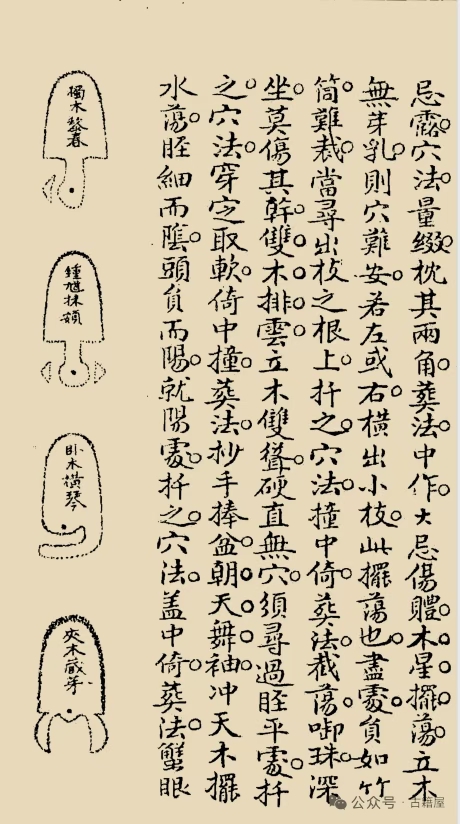 忌露穴法量綴枕其兩角葬法中作大忌傷體木星擺蕩立木
無芽乳則穴難安若左或右橫出小枝此擺蕩也盡處貟如竹
筒難裁當尋出枝之根上扦之穴法撞中倚葬法截蕩啣珠深
坐莫傷其幹雙木排雲立木雙聳硬直無穴須尋過脛平處扦
之穴法穿定取軟倚中撞葬法抄手捧盆朝天舞袖冲天木擺
水蕩脛細而蔭頭貟而陽就陽處扦之穴法盖中倚葬法蟹眼
獨木發春
鍾馗抹額
卧木橫琴
夾木藏芽
公众号·古籍屋